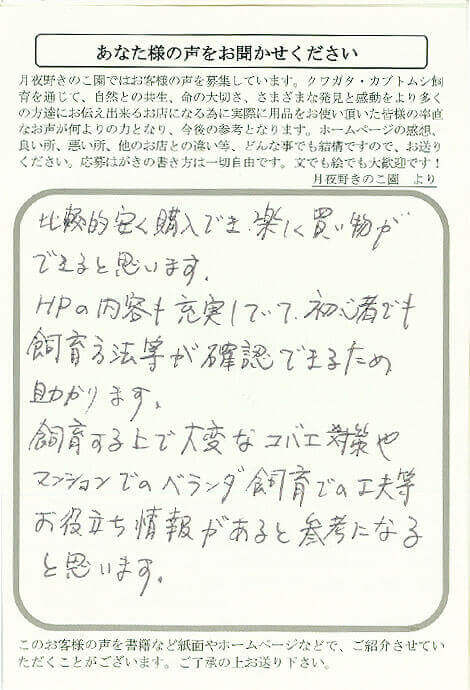 あなた様の声をお聞かせください
月夜野きのこ園ではお客様の声を募集しています。クワガタ・カブトムシ飼
育を通じて、自然との共生、命の大切さ、さまざまな発見と感動をより多く
の方達にお伝え出来るお店になる為に実際に用品をお使い頂いた皆様の率直
なお声が何よりの力となり、今後の参考となります。ホームページの感想、
良い所、悪い所、他のお店との違い等、どんな事でも結構ですので、お送り
ください。応募はがきの書き方は一切自由です。文でも絵でも大歓迎です！
月夜野きのこ園　より
比較的安く購入でき、楽に買い物が
できると思います。
HPの内容も充実していて、初心者でも
飼育方法等が確認できるため
助かります。
飼育する上で大変なコバエ対策や
マンションでのベランダ飼育での工夫等
お役立ち情報があると参考になる
と思います。
このお客様の声を書籍など紙面やホームページなどで、ご紹介させてい
ただくことがございます。ご了承の上お送り下さい。